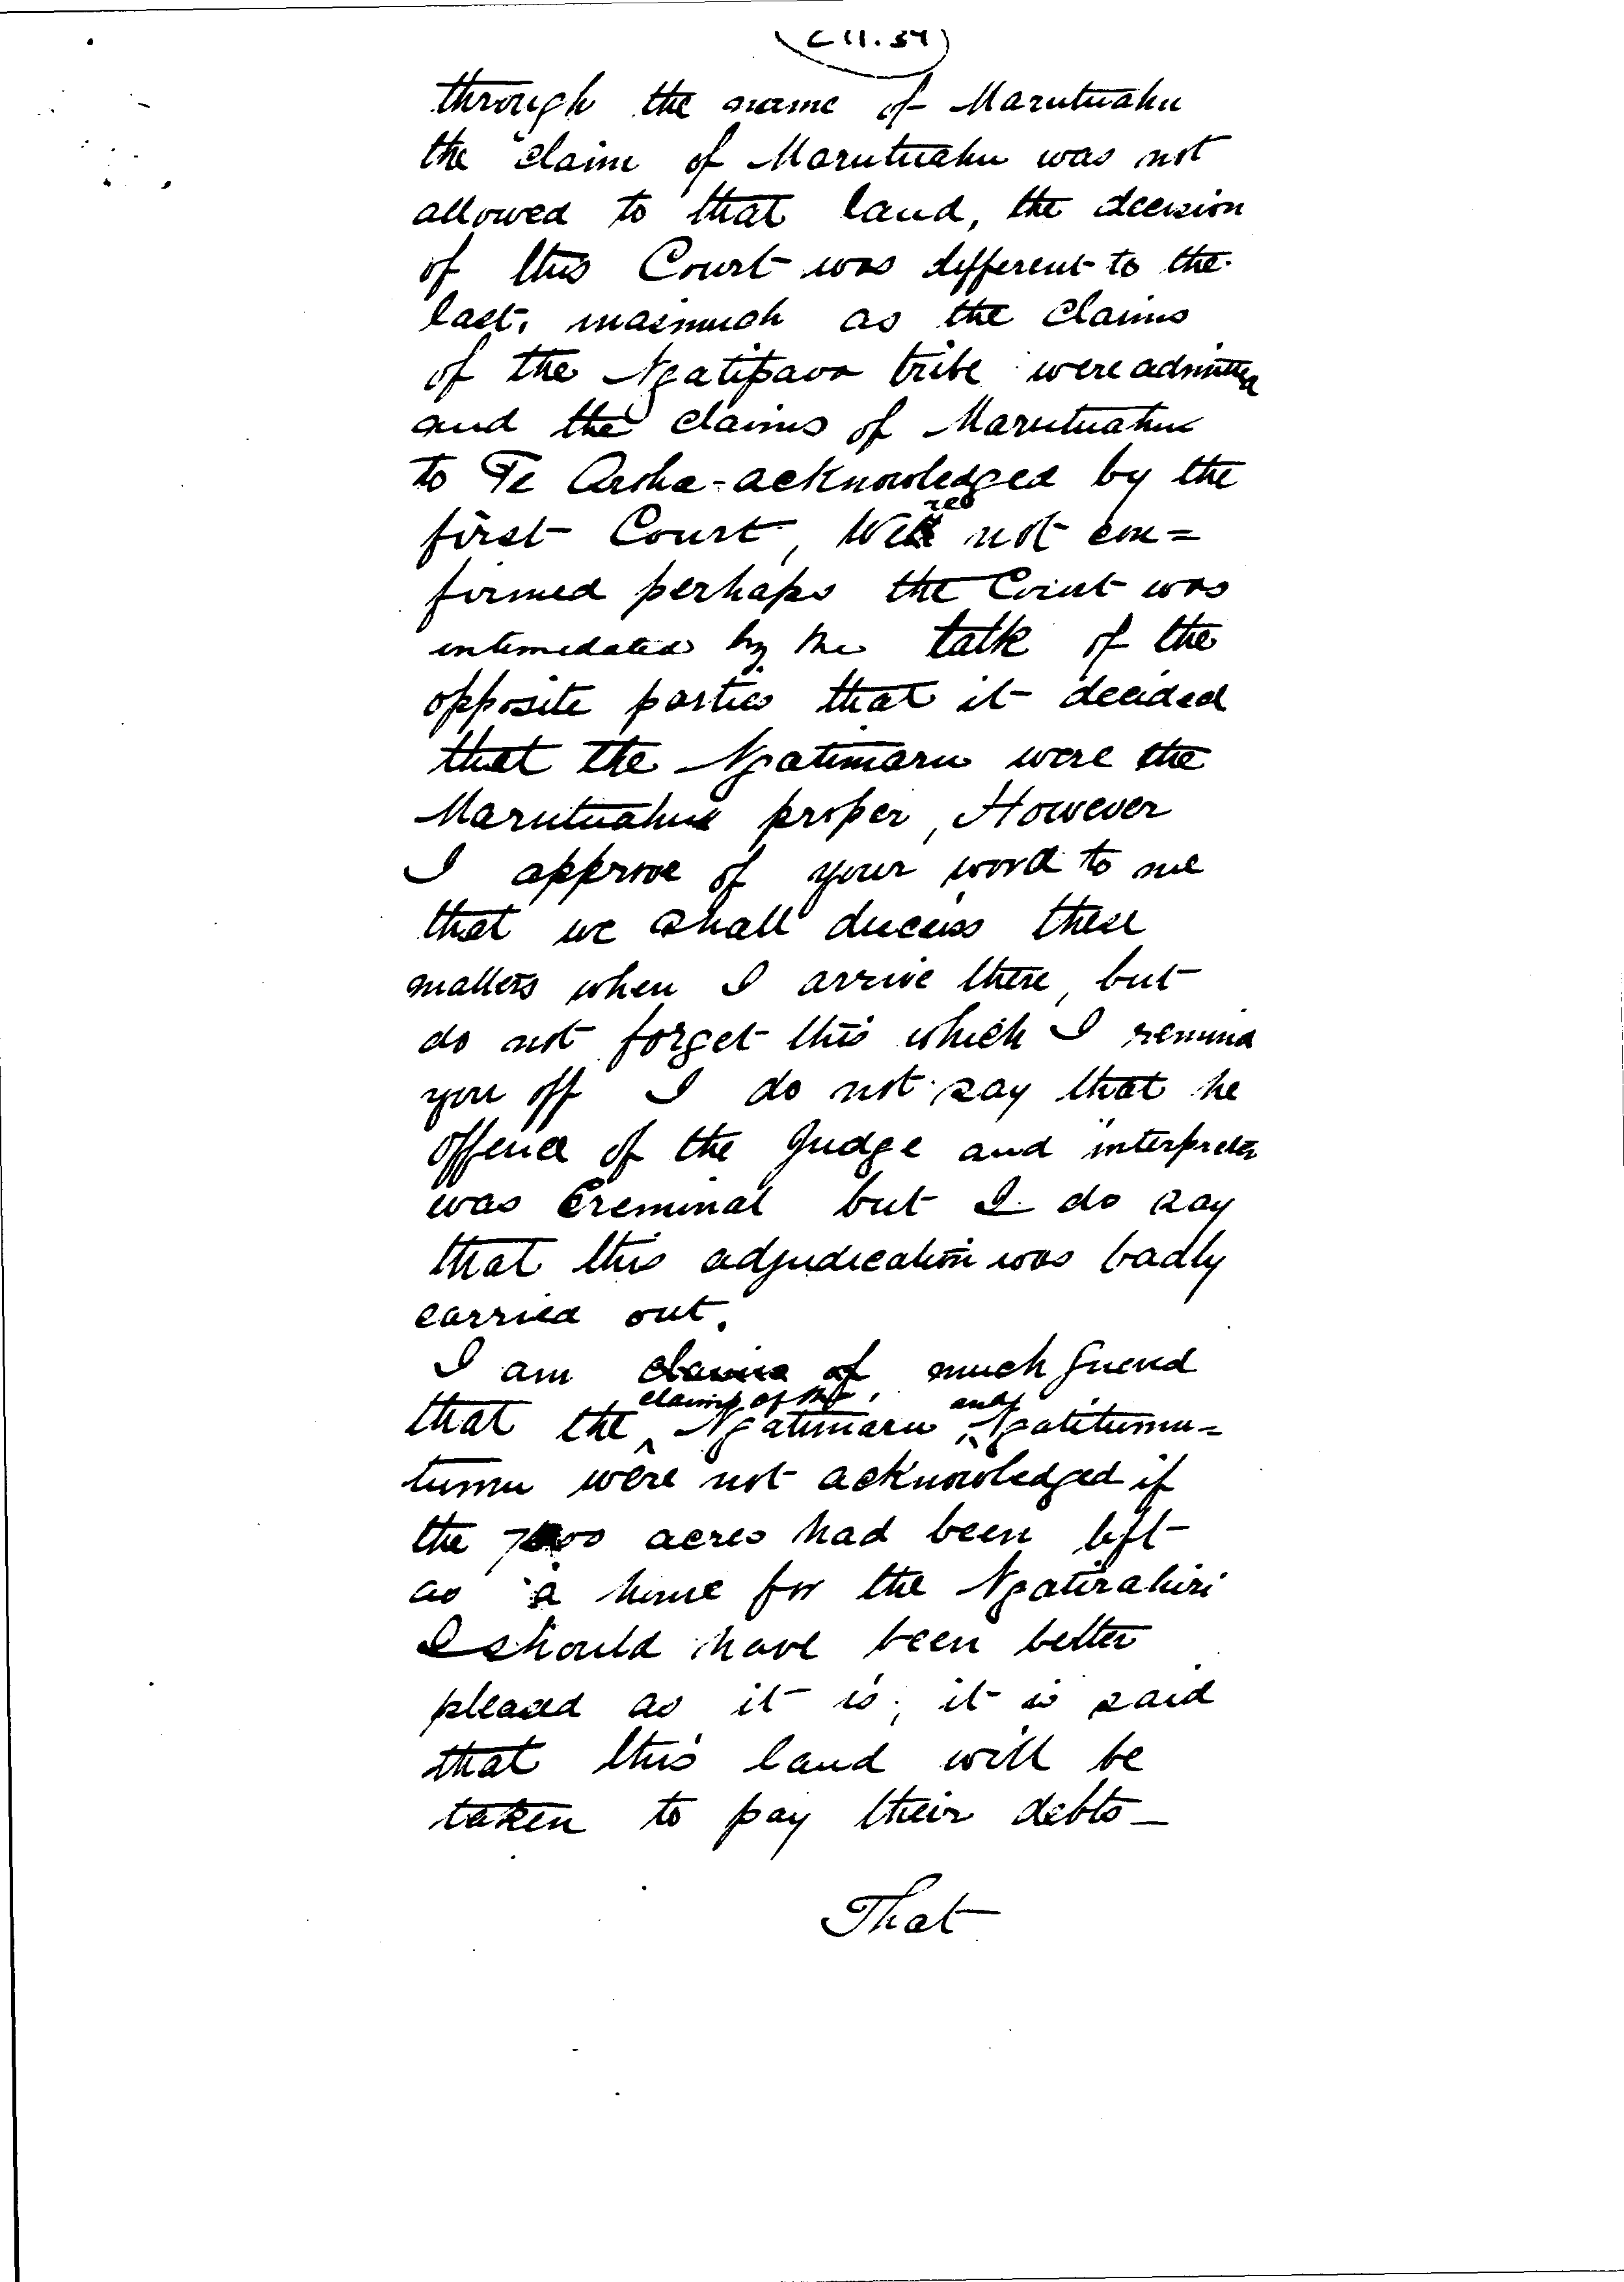 (C 11.34)
through the name of Marutuahu
the claim of Marutuahu was not
allowed to that land, the decision
of this Court was different to the
last, inasmuch as the Claims
of the Ngatipaoa tribe were admitted
and the claims of Marutuahu
to Te Aroha - acknowledged by the
first Court, were not con=
firmed perhaps the Court was
intimedated by the talk of the
opposite parties that it decided
that the Ngatimaru were the
Marutuahu proper, However
I approve of your word to me
that we shall discuss these
matters when I arrive there, but
do not forget this which I remind
you off I do not say that he
offence of the Judge and interpreter
was Creminal but I do say
that this adjudication was badly
carried out.
I am claims of much grieved
that the claims of the Ngatimaru and Ngatitumu=
tumu were not acknowledged if
the acres had been left
as a home for the Ngatirahiri
I should have been better
pleased as it is; it is said
that this land will be
taken to pay their debts —
That